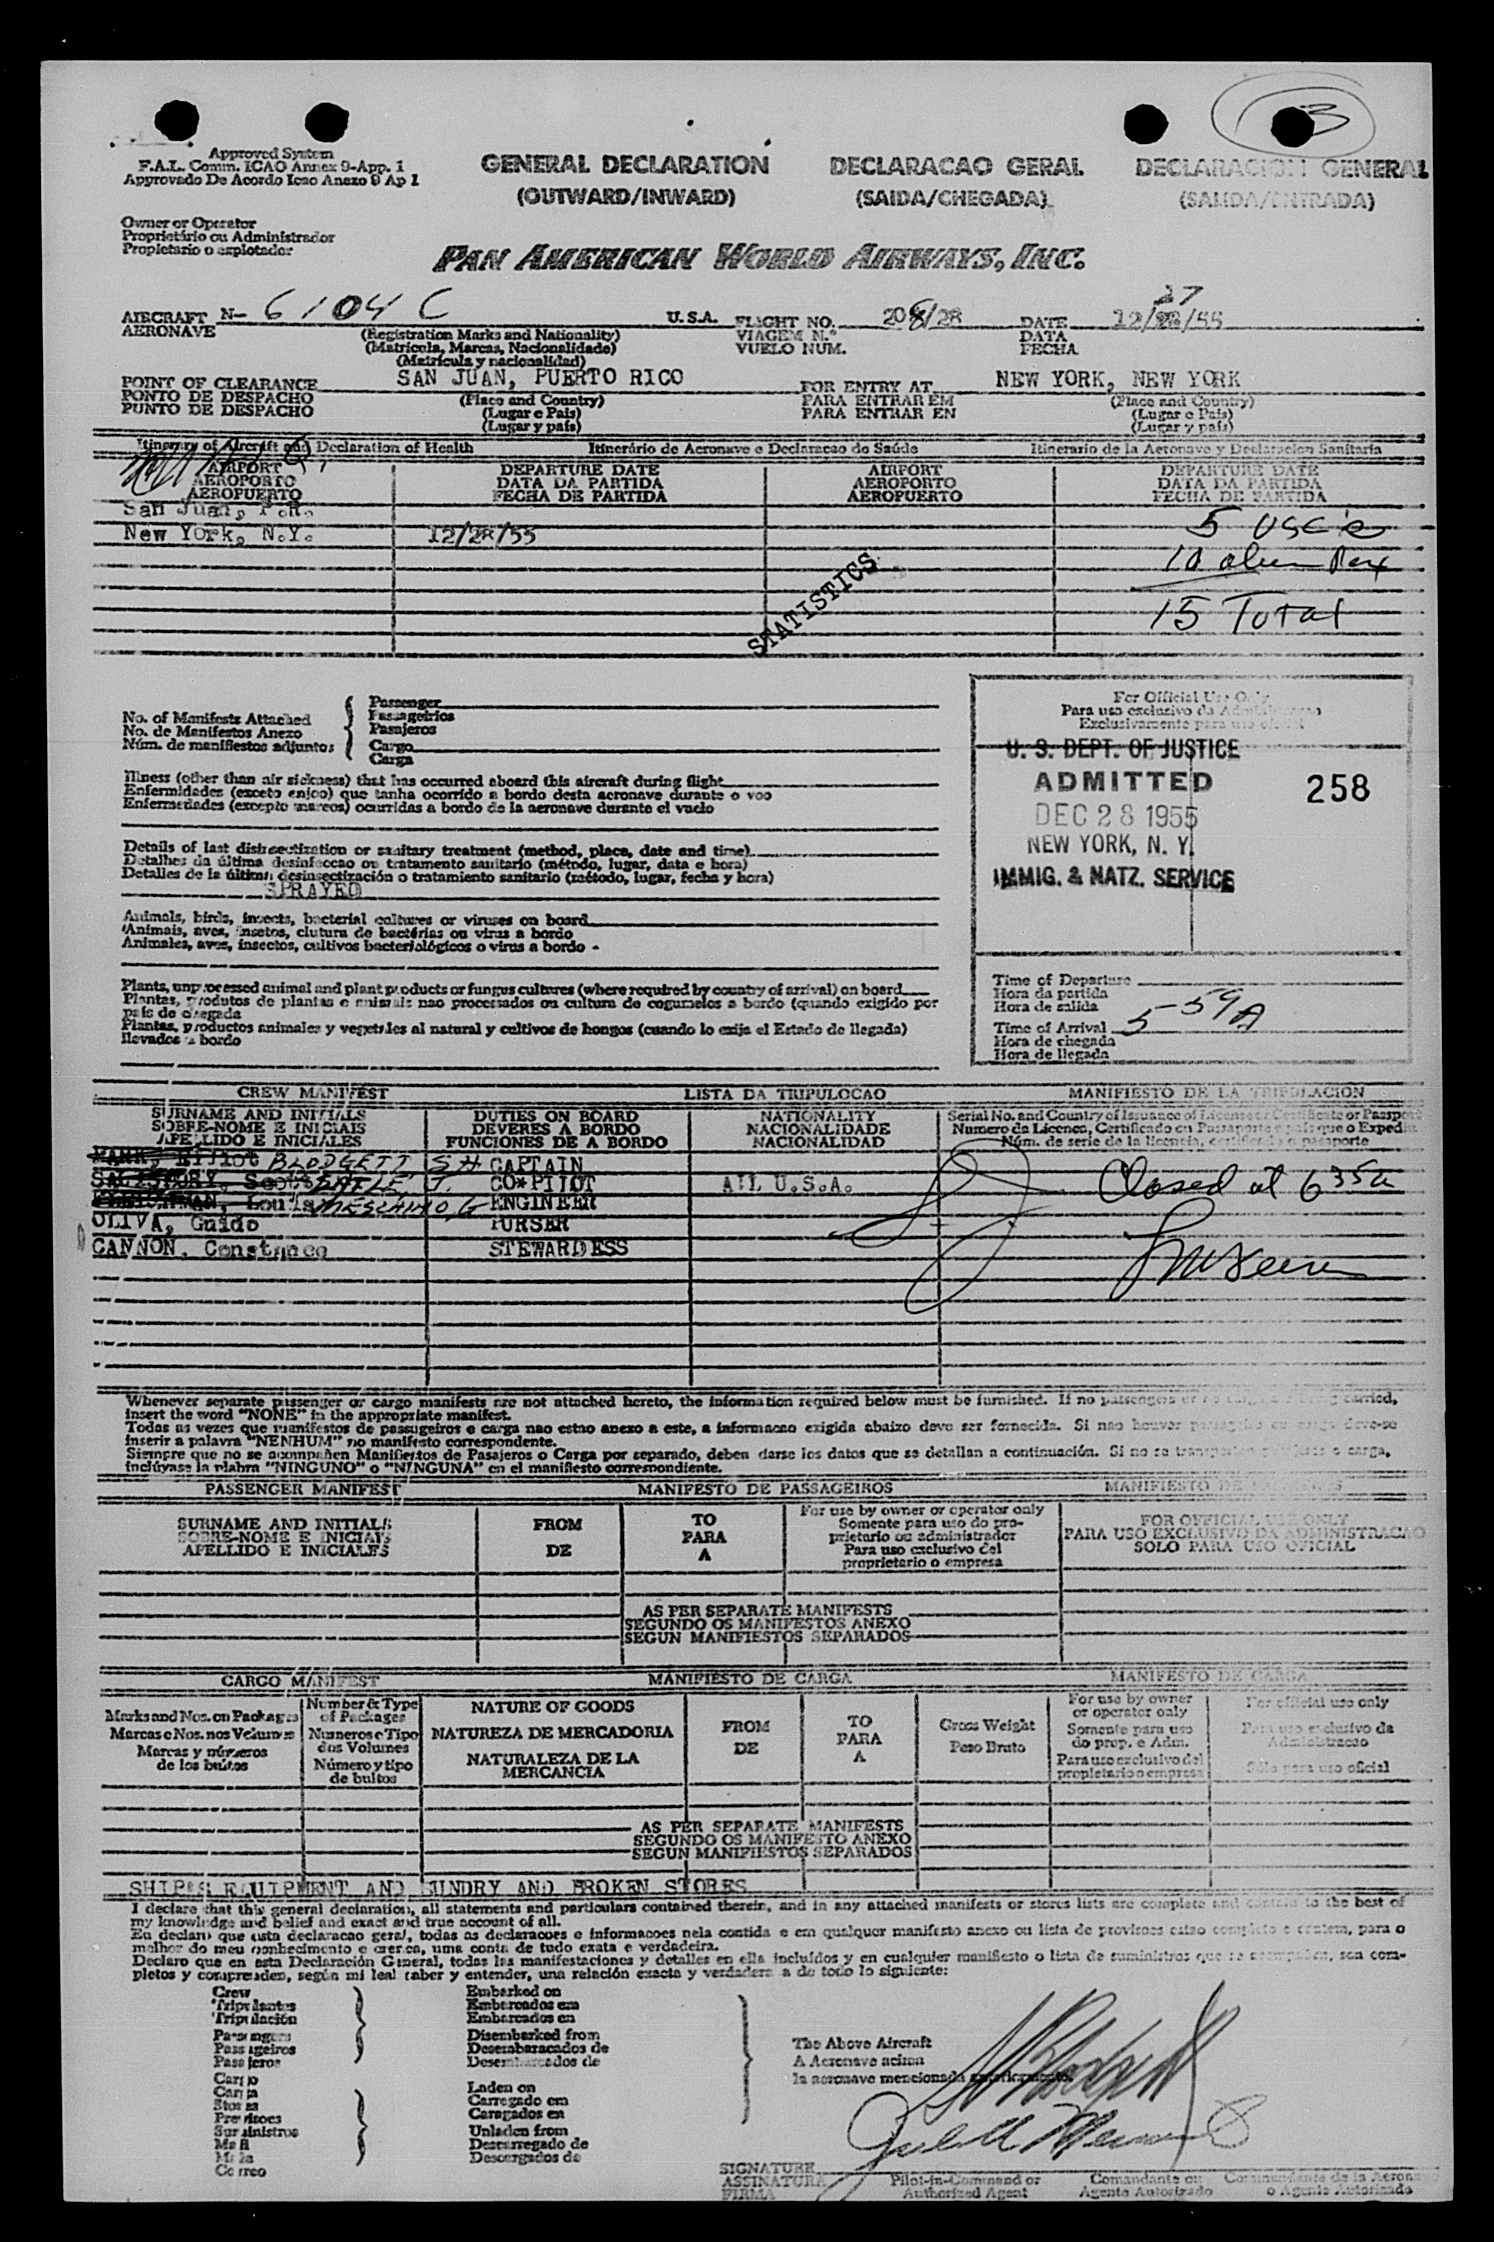 Approved System
F.A.L. Comm. ICAO Annex 9-App. 1
Approvado De Acordo Icao Anexo 9 Ap 1
GENERAL DECLARATION
(OUTWARD/INWARD)
DECLARACAO GERAL
(SAIDA/CHEGADA)
DECLARACION GENERAL
(SALIDA/ENTRADA)
Owner or Operator
Proprietário ou Administrador
Propietario o explotador
PAN AMERICAN WORLD AIRWAYS, INC.
AIRCRAFT N- 6104C U.S.A. FLIGHT NO. 208/28 DATE 12/28/55
27
AERONAVE (Registration Marks and Nationality) VIAGEM N.º DATA
(Matrícula, Marcas, Nacionalidade) VUELO NUM. FECHA
(Matrícula y nacionalidad)
POINT OF CLEARANCE SAN JUAN, PUERTO RICO FOR ENTRY AT NEW YORK, NEW YORK
PONTO DE DESPACHO (Place and Country) PARA ENTRAR EM (Place and Country)
PUNTO DE DESPACHO (Lugar e Pais) PARA ENTRAR EN (Lugar e Pais)
(Lugar y país) (Lugar y país)
Itinerary of Aircraft and Declaration of Health Itinerário de Aeronave e Declaracao de Saúde Itinerario de la Aeronave y Declaracion Sanitaria
AIRPORT DEPARTURE DATE AIRPORT DEPARTURE DATE
AEROPORTO DATA DA PARTIDA AEROPORTO DATA DA PARTIDA
AEROPUERTO FECHA DE PARTIDA AEROPUERTO FECHA DE PARTIDA
San Juan, P.R.
New York, N.Y. 12/28/55
5 USC's
10 alien Pax
15 Total
STATISTICS
No. of Manifests Attached
No. de Manifestos Anexo
Núm. de manifiestos adjuntos
Passenger
Passageirios
Pasajeros
Cargo
Carga
Illness (other than air sickness) that has occurred aboard this aircraft during flight
Enfermidades (exceto enjoo) que tanha ocorrido a bordo desta aeronave durante o voo
Enfermedades (excepto mareos) ocurridas a bordo de la aeronave durante el vuelo
Details of last disinsectization or sanitary treatment (method, place, date and time)
Detalhes da última desinfeccao ou tratamento sanitario (método, lugar, data e hora)
Detalles de la última desinsectización o tratamiento sanitario (método, lugar, fecha y hora)
SPRAYED
Animals, birds, insects, bacterial cultures or viruses on board
Animais, aves, insetos, clutura de bactérias ou virus a bordo
Animales, aves, insectos, cultivos bacteriológicos o virus a bordo -
Plants, unprocessed animal and plant products or fungus cultures (where required by country of arrival) on board
Plantas, produtos de plantas e animais nao processados ou cultura de cogumelos a bordo (quando exigido por
pais de chegada
Plantas, productos animales y vegetales al natural y cultivos de hongos (cuando lo exija el Estado de llegada)
llevados a bordo
For Official Use Only
Para uso exclusivo da Administracao
Exclusivamente para uso oficial
U. S. DEPT. OF JUSTICE
ADMITTED 258
DEC 28 1955
NEW YORK, N. Y.
IMMIG. & NATZ. SERVICE
Time of Departure
Hora da partida
Hora de salida
Time of Arrival 5-59A
Hora de chegada
Hora de llegada
CREW MANIFEST LISTA DA TRIPULOCAO MANIFIESTO DE LA TRIPULACION
SURNAME AND INITIALS DUTIES ON BOARD NATIONALITY Serial No. and Country of Issuance of License, Certificate or Passport
SOBRE-NOME E INICIAIS DEVERES A BORDO NACIONALIDADE Numero da Licenca, Certificado ou Passaporte e pais que o Expediu
APELLIDO E INICIALES FUNCIONES DE A BORDO NACIONALIDAD Núm. de serie de la licencia, certificado o pasaporte
BLODGETT SH CAPTAIN
CO*PILOT ALL U.S.A. Closed at 635a
ENGINEER
OLIVA, Guido PURSER
CANNON, Constance STEWARDESS
Whenever separate passenger or cargo manifests are not attached hereto, the information required below must be furnished. If no passengers or no cargo carried,
insert the word "NONE" in the appropriate manifest.
Todas as vezes que manifestos de passageiros e carga nao estao anexo a este, a informacao exigida abaixo deve ser fornecida. Si nao houver deve-se
inserir a palavra "NENHUM" no manifesto correspondente.
Siempre que no se acompañen Manifiestos de Pasajeros o Carga por separado, deben darse los datos que se detallan a continuación. Si no se o carga,
inclúyase la plabra "NINGUNO" o "NINGUNA" en el manifiesto correspondiente.
PASSENGER MANIFEST MANIFESTO DE PASSAGEIROS MANIFIESTO DE PASAJEROS
SURNAME AND INITIALS FROM TO For use by owner or operator only FOR OFFICIAL USE ONLY
SOBRE-NOME E INICIAIS DE PARA Somente para uso do pro- PARA USO EXCLUSIVO DA ADMINISTRACAO
APELLIDO E INICIALES A prietario ou administrador SOLO PARA USO OFICIAL
Para uso exclusivo del
proprietario o empresa
AS PER SEPARATE MANIFESTS
SEGUNDO OS MANIFESTOS ANEXO
SEGUN MANIFIESTOS SEPARADOS
CARGO MANIFEST MANIFIESTO DE CARGA MANIFESTO DE CARGA
Marks and Nos. on Packages
Marcas e Nos. nos Volumes
Marcas y números
de los bultos
Number & Type
of Packages
Numeros e Tipo
dos Volumes
Número y tipo
de bultos
NATURE OF GOODS
NATUREZA DE MERCADORIA
NATURALEZA DE LA
MERCANCIA
FROM
DE
TO
PARA
A
Gross Weight
Peso Bruto
For use by owner
or operator only
Somente para uso
do prop. e Adm.
Para uso exclusivo del
propietario o empresa
For official use only
Para uso exclusivo da
Administracao
Sólo para uso oficial
AS PER SEPARATE MANIFESTS
SEGUNDO OS MANIFESTO ANEXO
SEGUN MANIFIESTOS SEPARADOS
SHIP'S EQUIPMENT AND SUNDRY AND BROKEN STORES
I declare that this general declaration, all statements and particulars contained therein, and in any attached manifests or stores lists are complete and contain to the best of
my knowledge and belief and exact and true account of all.
Eu declaro que esta declaracao geral, todas as declaracoes e informacoes nela contida e em qualquer manifesto anexo ou lista de provisoes estao completo e contem, para o
melhor do meu conhecimento e crenca, uma conta de tudo exata e verdadeira.
Declaro que en esta Declaración General, todas las manifestaciones y detalles en ella incluidos y en cualquier manifiesto o lista de suministros que se acompañen, son com-
pletos y comprenden, según mi leal saber y entender, una relación exacta y verdadera a de todo lo siguiente:
Crew
Tripulantes
Tripulación
Passengers
Passageiros
Pasajeros
Cargo
Carga
Stores
Provisoes
Suministros
Mail
Mala
Correo
Embarked on
Embarcados em
Embarcados en
Disembarked from
Desembaracados de
Desembarcados de
Laden on
Carregado em
Caragados en
Unladen from
Descarregado de
Descargados de
The Above Aircraft
A Aeronave acima
la aeronave mencionada anteriormente.
SIGNATURE
ASSINATURA
FIRMA
Pilot-in-Command or
Authorized Agent
Comandante ou
Agente Autorizado
Comandante de la Aeronave
o Agente Autorizado